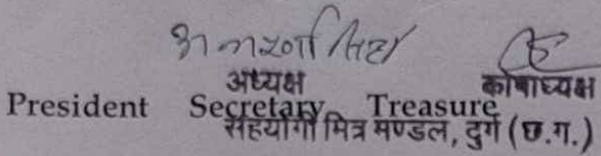 अध्यक्ष कोषाध्यक्ष
President Secretary Treasure
सहयोगी मित्र मण्डल, दुर्ग (छ.ग.)